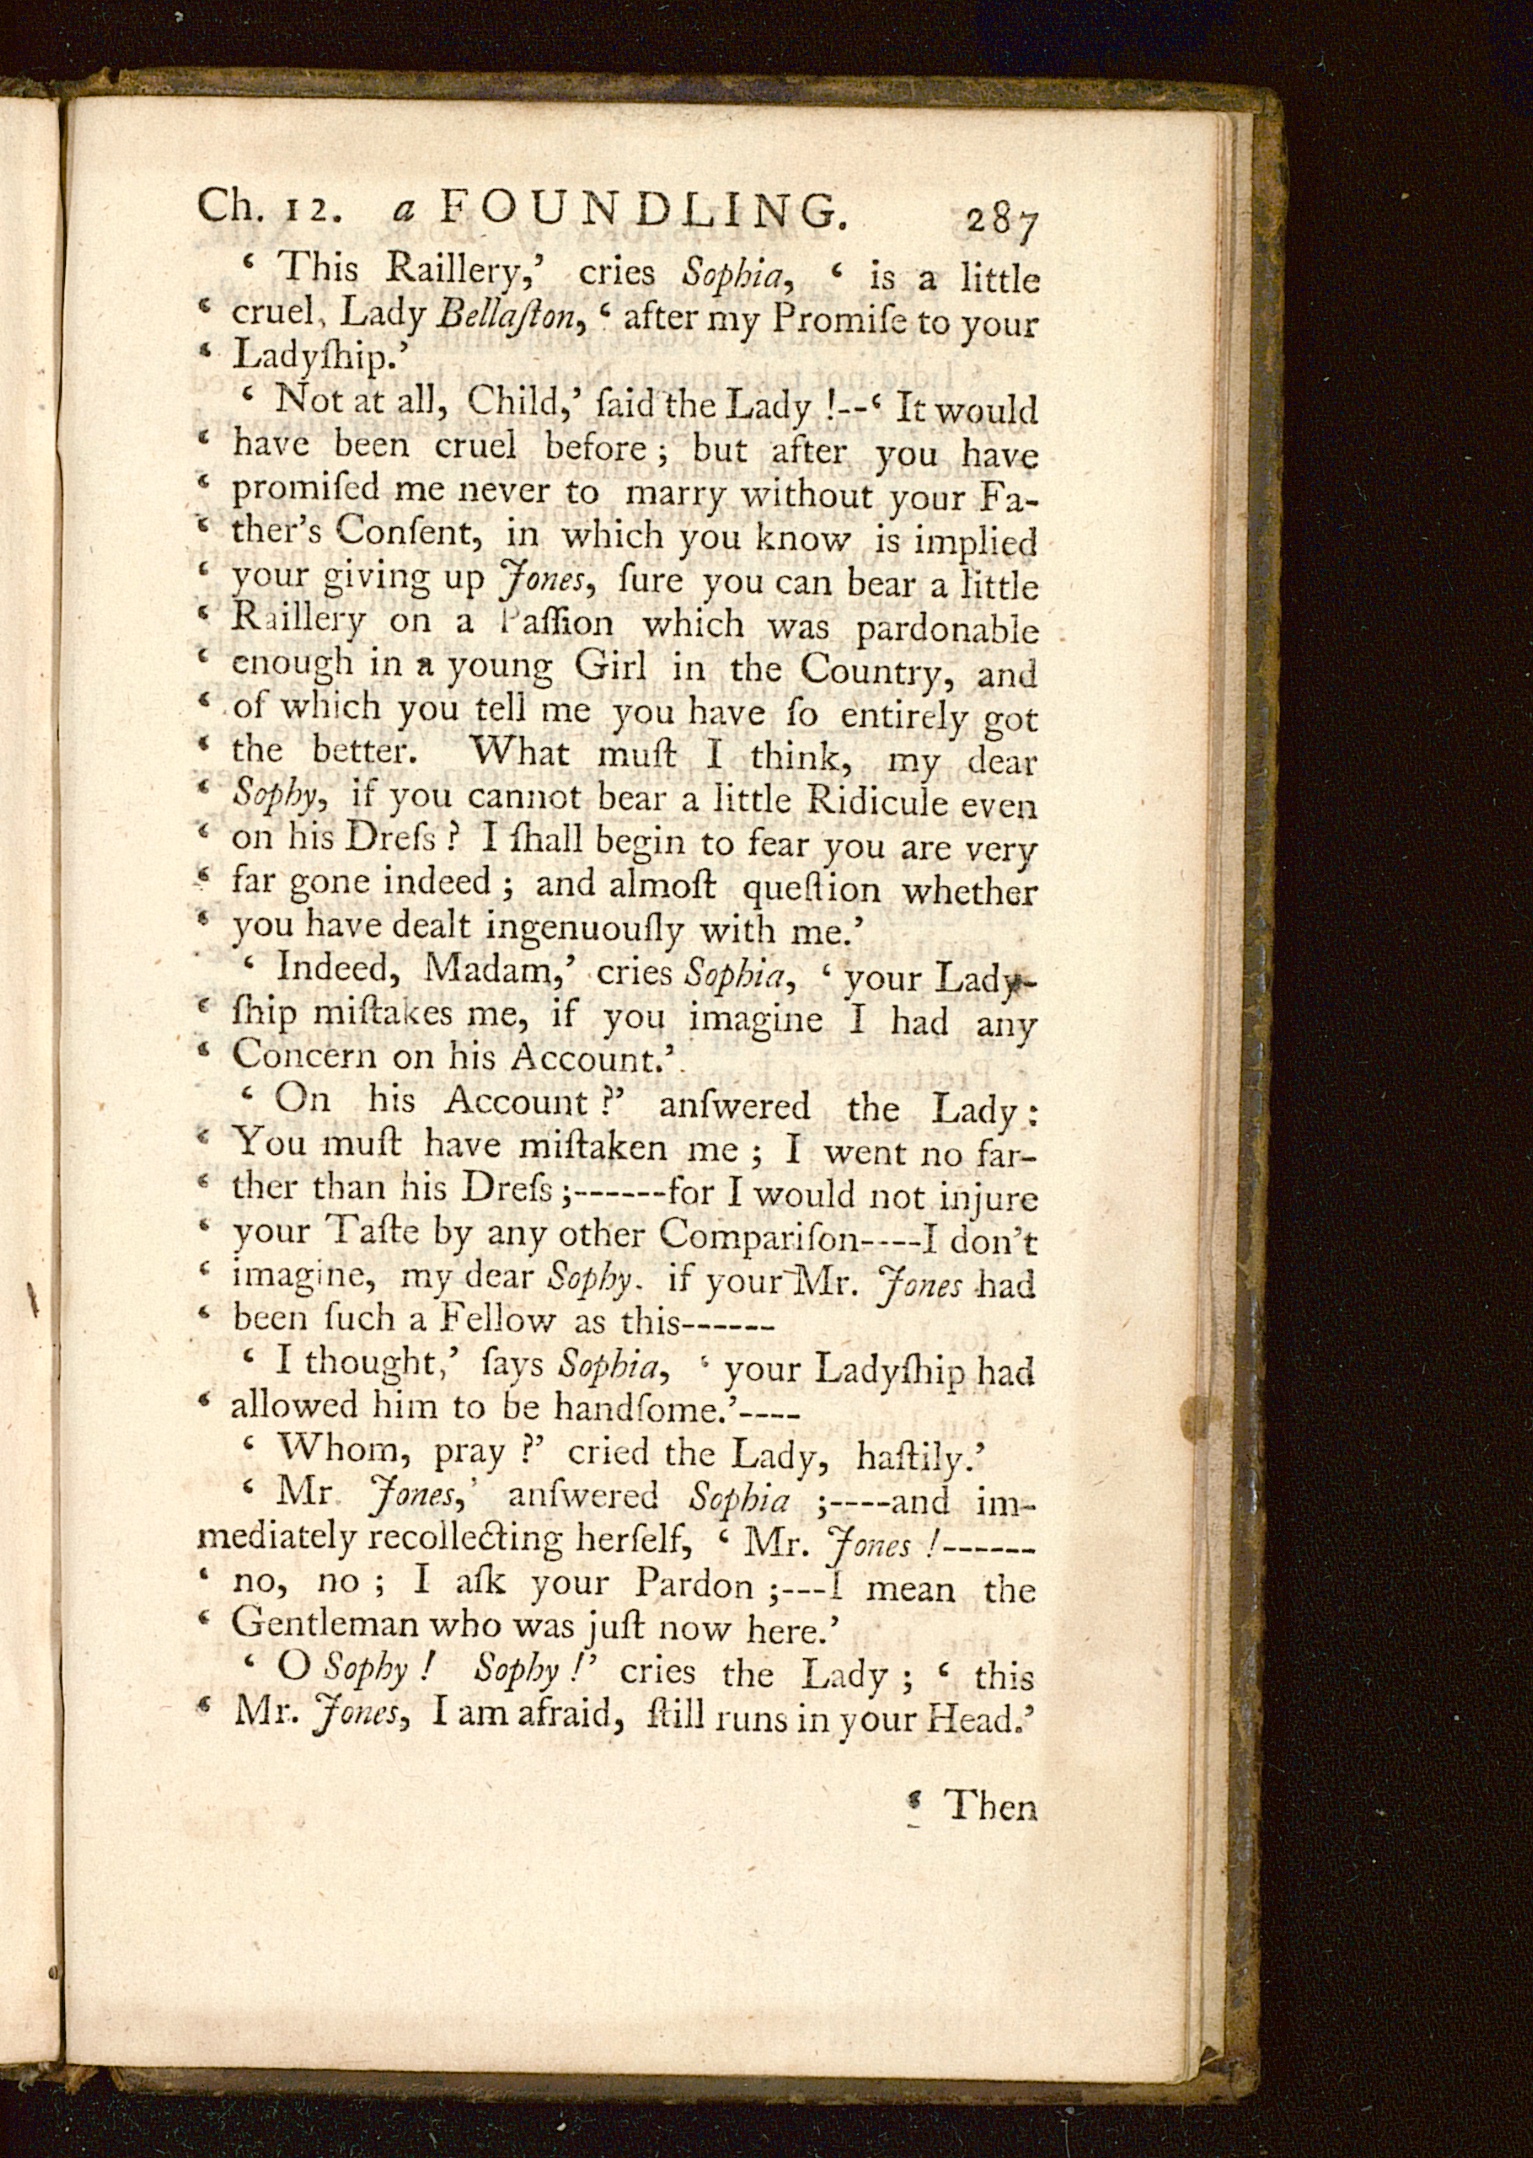 Ch. 12. a FOUNDLING. 287
‘ This Raillery,’ cries Sophia, ‘ is a little
‘ cruel, Lady Bellaſton, ‘ after my Promiſe to your
‘ Ladyſhip.’
‘ Not at all, Child,’ ſaid the Lady !--‘ It would
‘ have been cruel before ; but after you have
‘ promiſed me never to marry without your Fa-
‘ ther’s Conſent, in which you know is implied
‘ your giving up Jones, ſure you can bear a little
‘ Raillery on a Paſſion which was pardonable
‘ enough in a young Girl in the Country, and
‘ of which you tell me you have ſo entirely got
‘ the better. What muſt I think, my dear
‘ Sophy, if you cannot bear a little Ridicule even
‘ on his Dreſs ? I ſhall begin to fear you are very
‘ far gone indeed ; and almoſt queſtion whether
‘ you have dealt ingenuouſly with me.’
‘ Indeed, Madam,’ cries Sophia, ‘ your Lady-
‘ ſhip miſtakes me, if you imagine I had any
‘ Concern on his Account.’
‘ On his Account ?’ anſwered the Lady :
‘ You muſt have miſtaken me ; I went no far-
‘ ther than his Dreſs ;------for I would not injure
‘ your Taſte by any other Compariſon----I don’t
‘ imagine, my dear Sophy. if your Mr. Jones had
‘ been ſuch a Fellow as this------
‘ I thought,’ ſays Sophia, ‘ your Ladyſhip had
‘ allowed him to be handſome.’----
‘ Whom, pray ?’ cried the Lady, haſtily.’
‘ Mr. Jones,’ anſwered Sophia ;----and im-
mediately recollecting herſelf, ‘ Mr. Jones !------
‘ no, no ; I aſk your Pardon ;---I mean the
‘ Gentleman who was juſt now here.’
‘ O Sophy ! Sophy !’ cries the Lady ; ‘ this
‘ Mr. Jones, I am afraid, ſtill runs in your Head.’
‘ Then